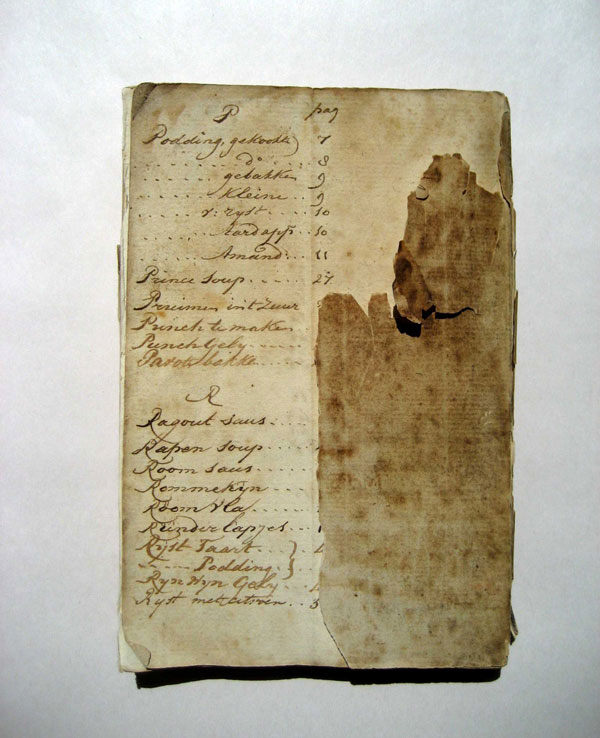 P pag
Podding, gekookte 7
do 8
gebakke 9
Kleine 9
v: ryst 10
Aardapp 10
Amand: 11
Prince soup 27
Pruime int Zuur
Punch te make
Punch Gely
bakke
R
Ragout saus
Rapen soup
Room saus
Rommekyn
Room Vla
Runder lapjes
Ryst Taart
Podding
Ryn Wyn Gely
Ryst met citroen